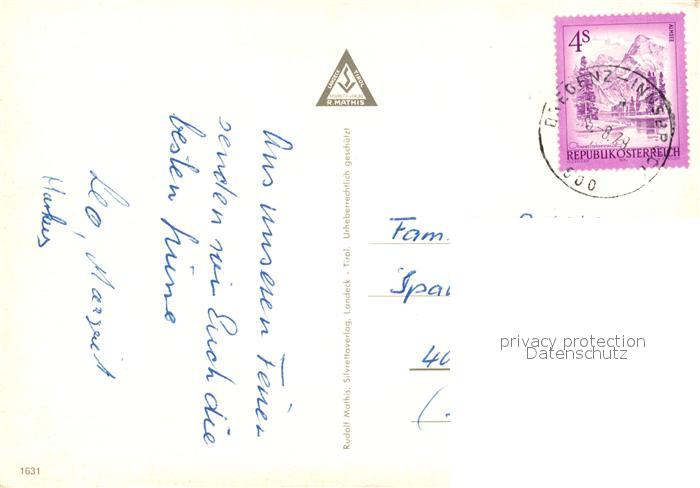 Aus unseren Ferien
senden wir Euch die
besten Grüsse
Leo, Margrit
Markus
LANDECK TIROL
SILVRETTA-VERLAG
R. MATHIS
Rudolf Mathis, Silvrettaverlag, Landeck - Tirol. Urheberrechtlich geschützt
4S
ALMSEE
REPUBLIK ÖSTERREICH
BREGENZ-INNSBRUCK
Fam.
privacy protection
Datenschutz
1631